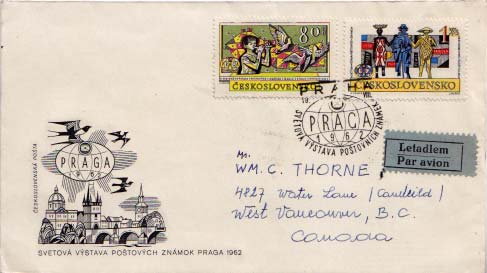 80 h
ČESKOSLOVENSKO
ČESKOSLOVENSKO
PRAHA
PRAGA
1962
SVĚTOVÁ VÝSTAVA POŠTOVNÍCH ZNÁMEK
Letadlem
Par avion
ČESKOSLOVENSKÁ POŠTA
PRAGA
1962
SVETOVÁ VÝSTAVA POŠTOVÝCH ZNÁMOK PRAGA 1962
Mr.
WM. C. THORNE
4827 Water Lane (Caulfeild)
West Vancouver, B.C.
Canada